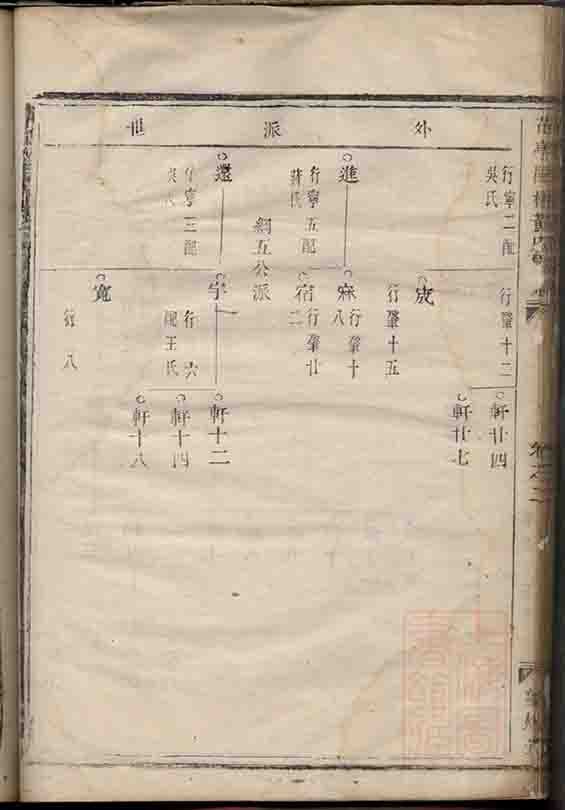 外 派 世
行寧二配
吳氏
進
行寧五配
蔣氏
綱五公派
還
行寧三配
行肇十二
宬
行肇十五
寐
行肇十
八
宿
行肇廿
二
行六
配王氏
寬
行八
軒廿四
軒廿七
軒十二
軒十四
軒十八
卷之二